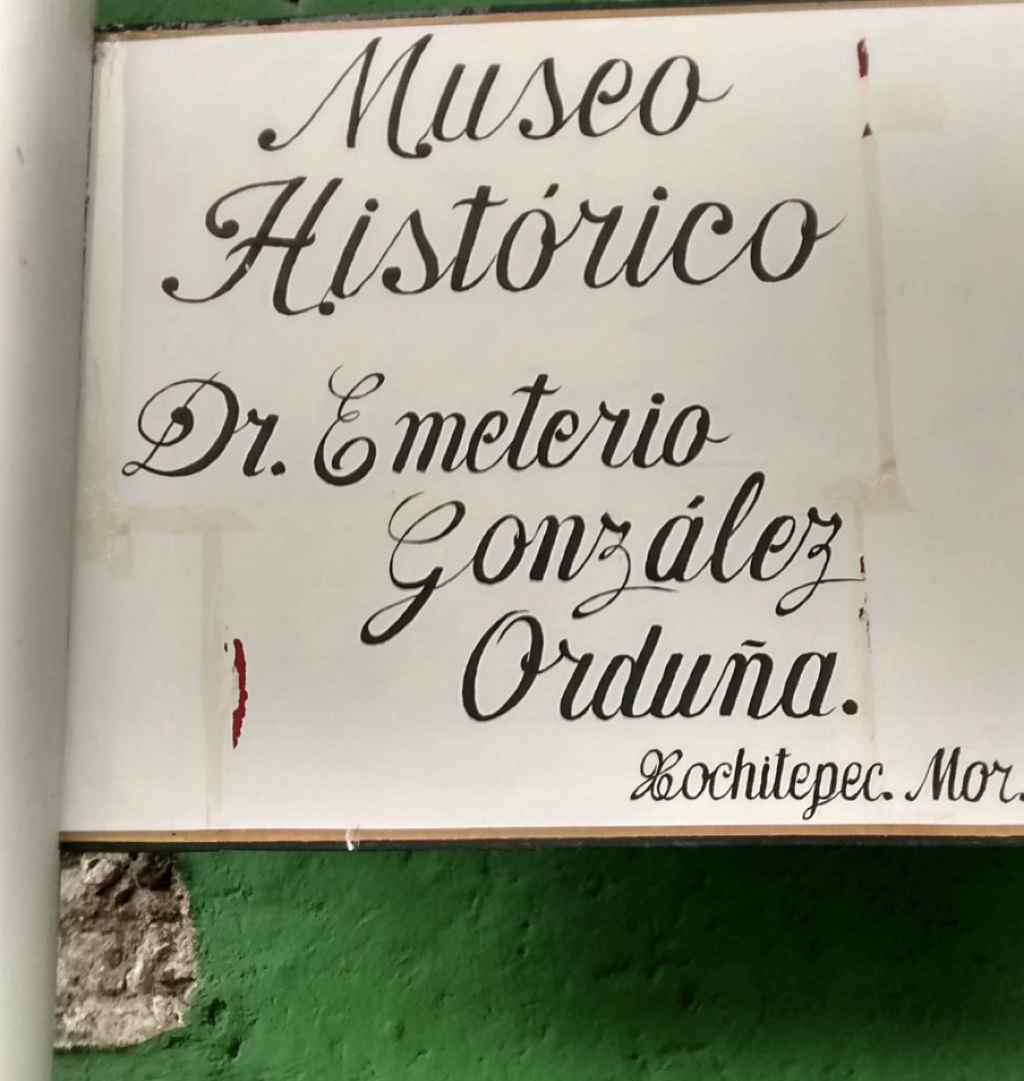 Museo
Histórico
Dr. Emeterio
González
Orduña.
Xochitepec. Mor.